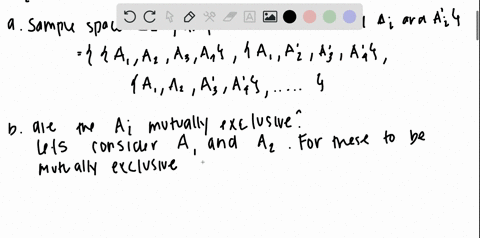 a. Sample space Ai and A'i }
= { { A1, A2, A3, A4 }, { A1, A'2, A'3, A'4 },
{ A1, A2, A'3, A'4 }, ..... }
b. are the Ai mutually exclusive?
Lets consider A1 and A2. For these to be
mutually exclusive